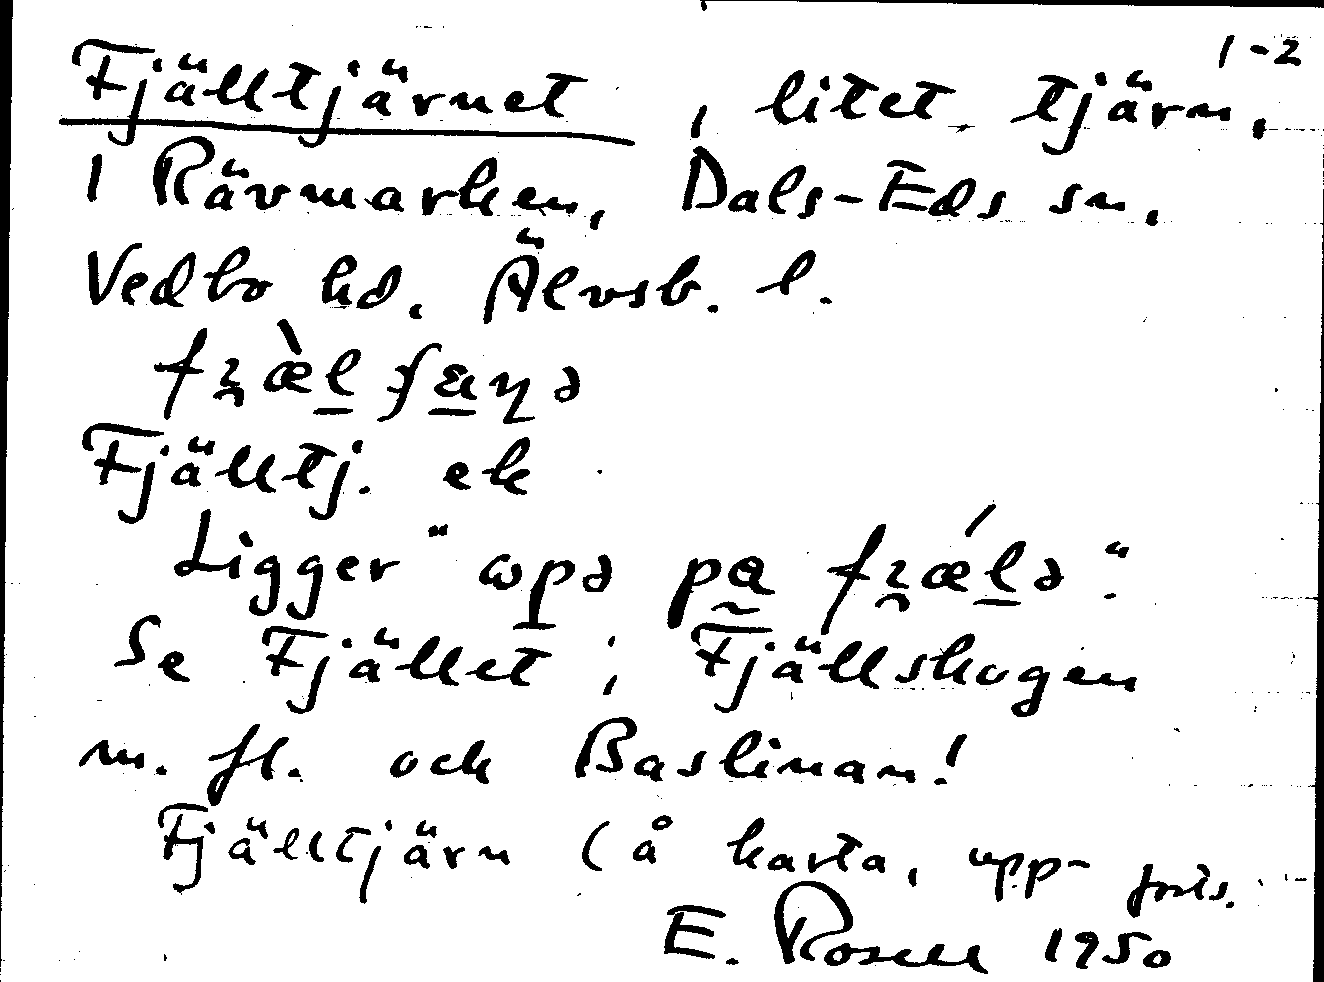 1-2
Fjälltjärnet, litet tjärn,
i Rävmarken, Dals-Eds sn,
Vedbo hd. Älvsb. l.
Fjälltj. ek
Ligger "
Se Fjället; Fjällskogen
m. fl. och Baslinan!
Fjälltjärn (å karta, upp- forts.
E. Rosell 1950